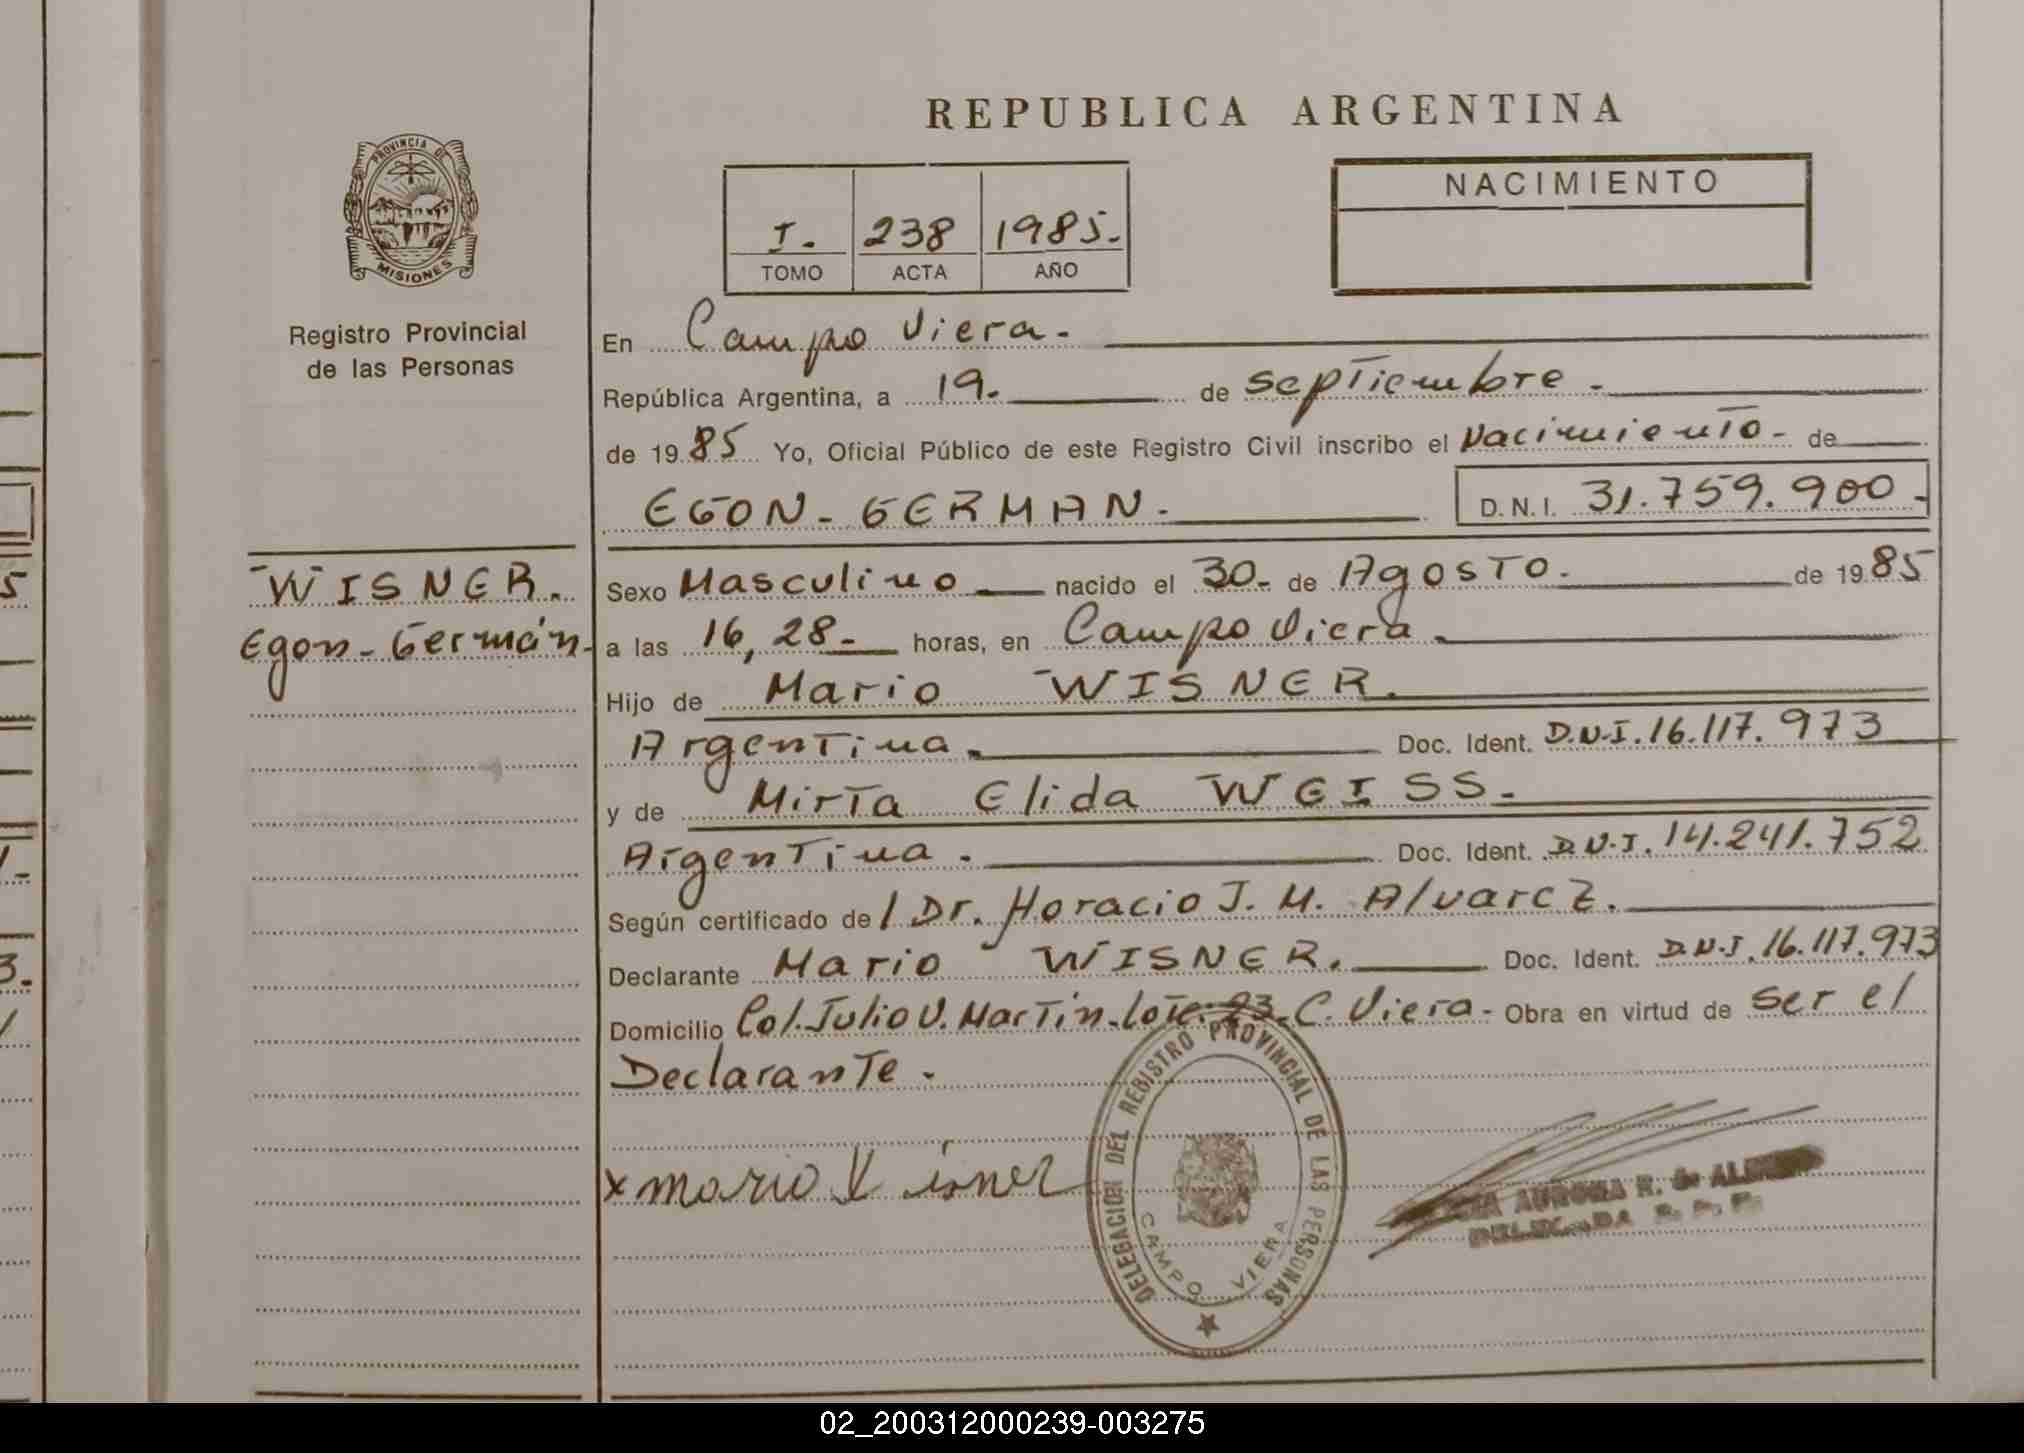 REPUBLICA ARGENTINA
PROVINCIA DE
MISIONES
Registro Provincial
de las Personas
I. 238 1985.
TOMO ACTA AÑO
NACIMIENTO
En Campo Viera.
República Argentina, a 19. de septiembre.
de 1985 Yo, Oficial Público de este Registro Civil inscribo el Nacimiento. de
EGON-GERMAN. D.N.I. 31.759.900.
WISNER.
Egon-Germán.
Sexo Masculino nacido el 30. de Agosto. de 1985
a las 16,28 horas, en Campo Viera.
Hijo de Mario WISNER.
Argentina. Doc. Ident. D.N.I. 16.117.973
y de Mirta Elida WEISS.
Argentina. Doc. Ident. D.N.I. 14.241.752
Según certificado de/ Dr. Horacio J. M. Alvarez.
Declarante Mario WISNER. Doc. Ident. D.N.I. 16.117.973
Domicilio Col. Julio U. Martín-lote-23-C. Viera- Obra en virtud de ser el
Declarante.
x mario Wisner
DELEGACION DEL REGISTRO PROVINCIAL DE LAS PERSONAS
CAMPO VIERA
AURORA R. de
02_200312000239-003275